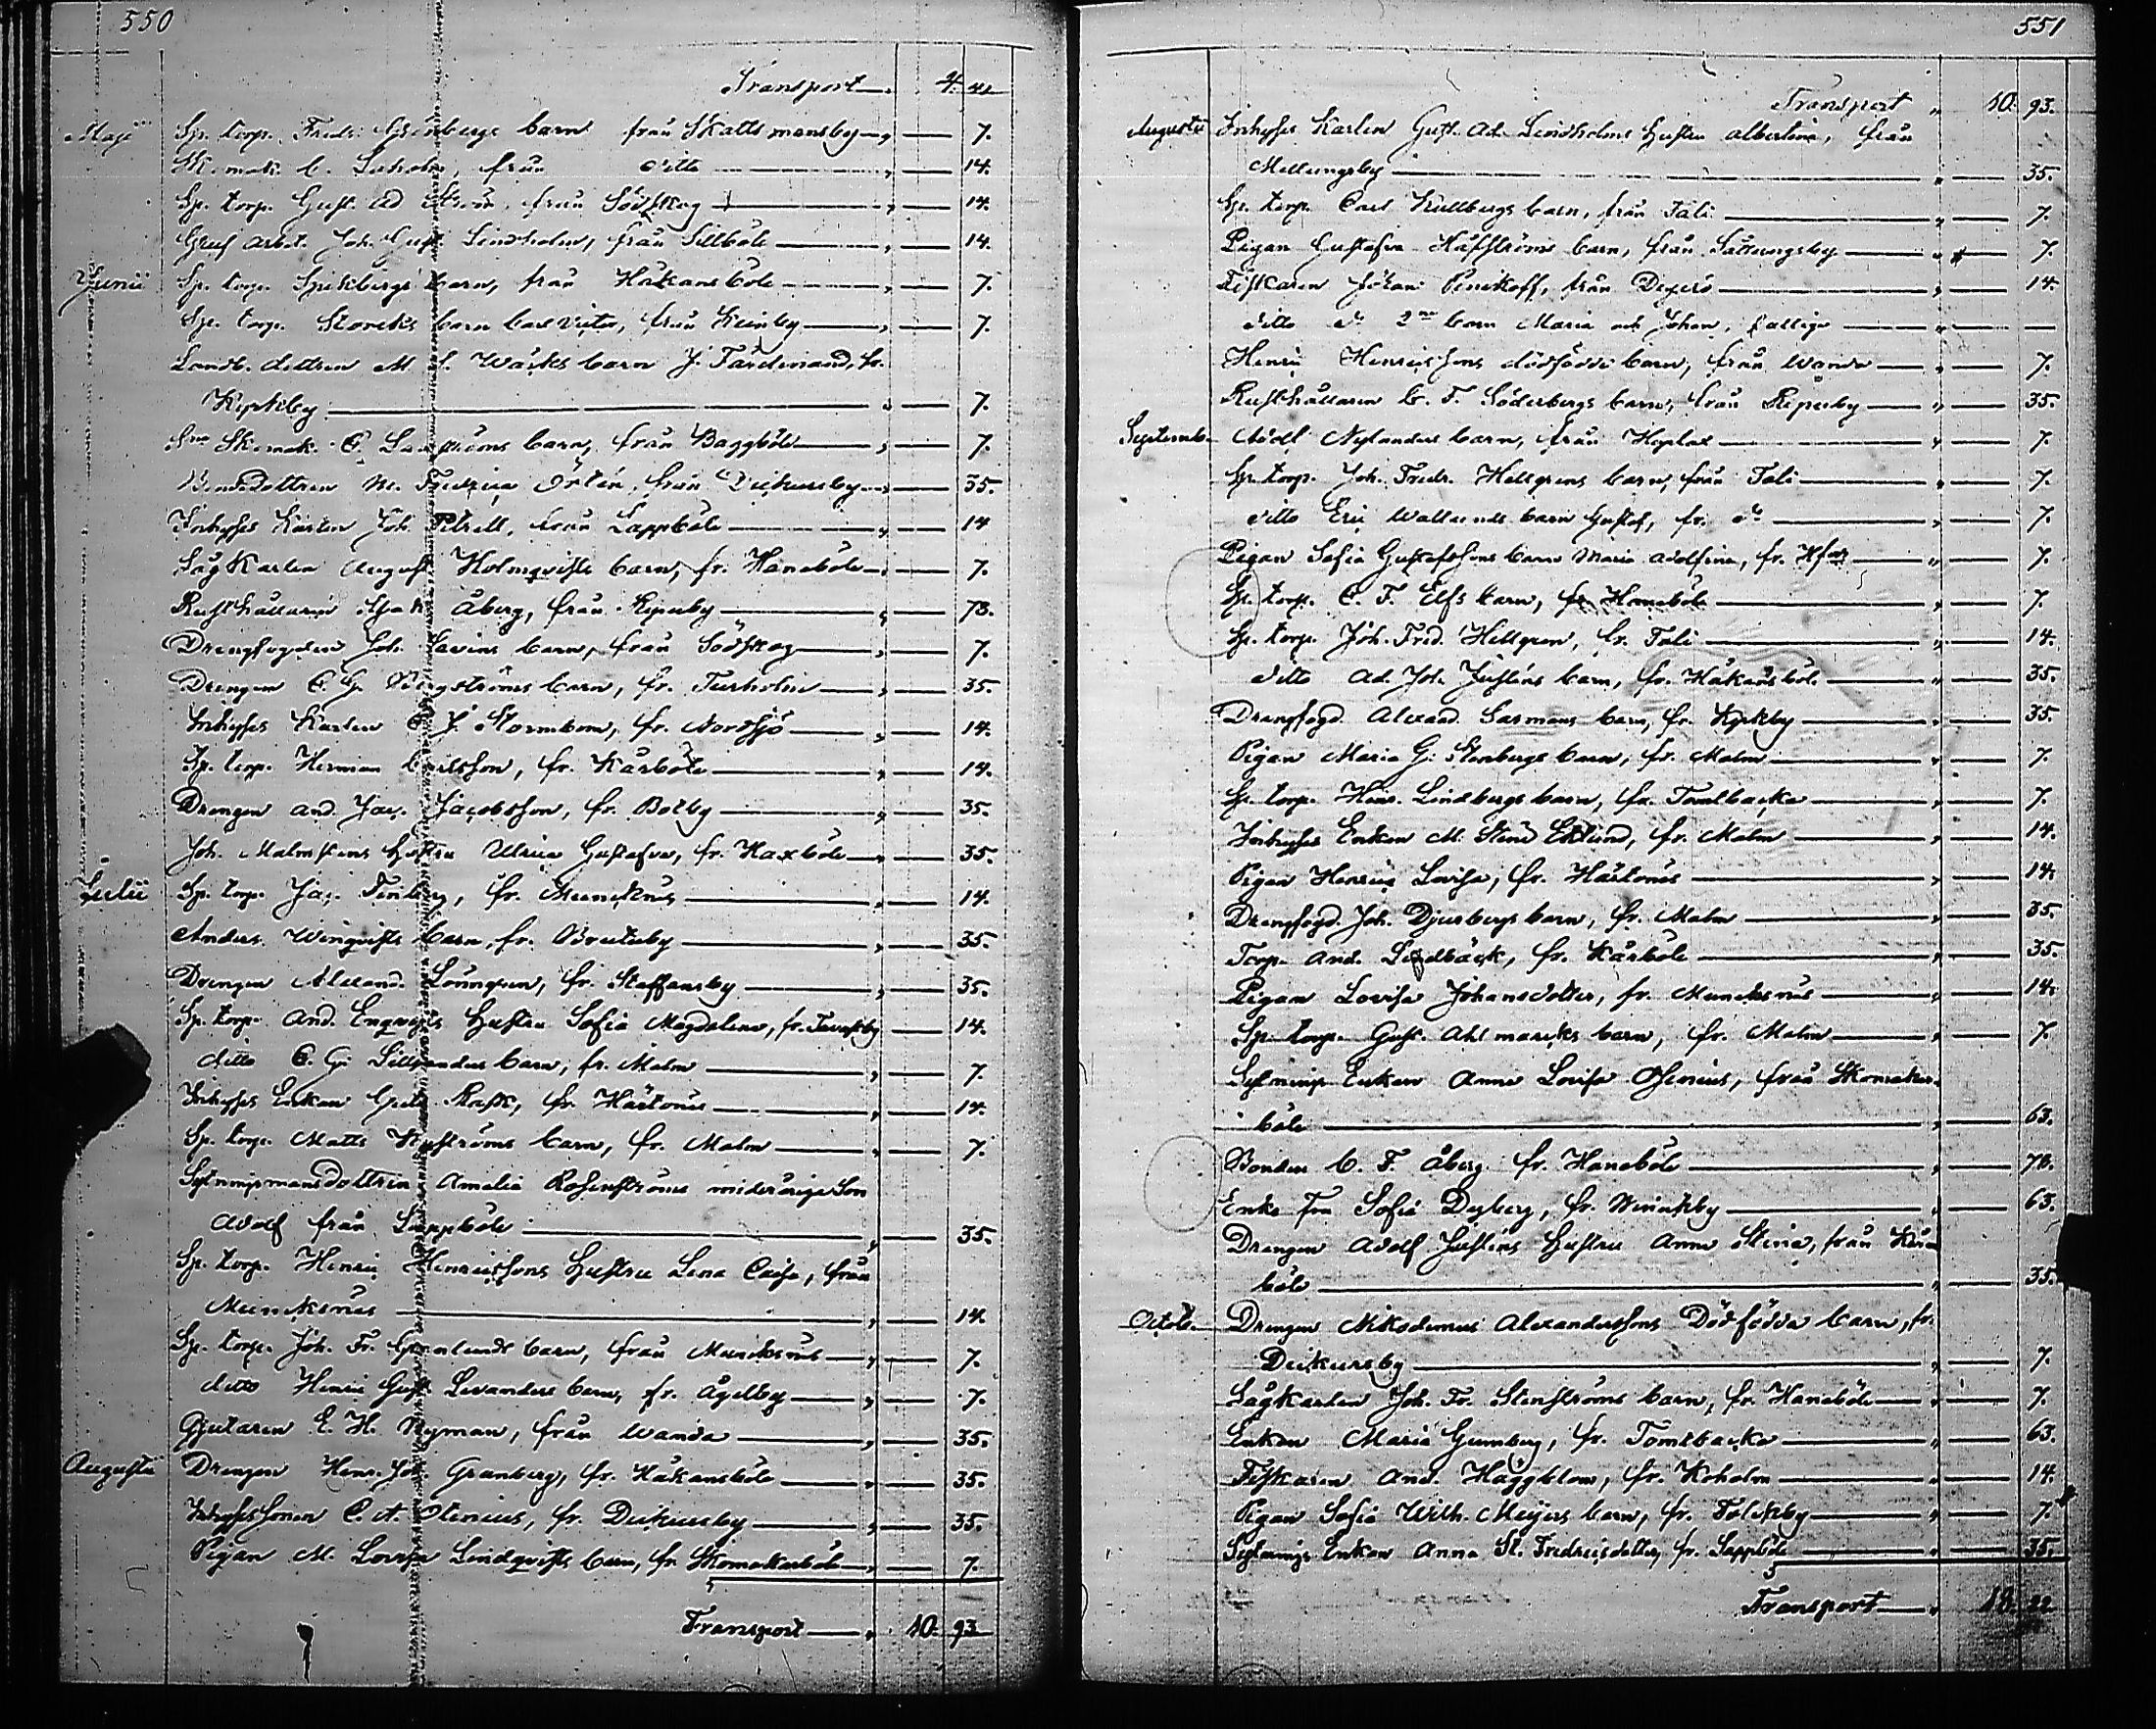 550
Transport 4.
Maji Sp. torp. Fredr. barn från Skattmansby 7.
Sk. mak. C. från ditto 14.
Sp. torp. Gust. Ad Ström, från Södskog 14.
Gruf arbet. Joh. Gust. Lindholm, från Sillböle 14.
Junii Sp. torp. Spikbergs barn, från Håkansböle 7.
Sp. torp. Storcks barn Carl Victor, från Keinby 7.
Landb. dottren M. L. Wacks barn J. Ferdinand, fr.
Kyrkby 7.
Skomak. C. barn, från Baggböle 7.
Bondedottren M. Fredrica Örtén, från Dickursby 35.
Inhyses Karlen Joh. Petrell, från Lappböle 14
Sågkarlen August Holmqvists barn, fr. Hanaböle 7.
Rusthållaren Isak Åberg, från Ripuby 73.
Drengfogden Joh. Savins barn, från Södskog 7.
Drengen C. G. Bergströms barn, fr. Turholm 35.
Inhyses Karlen C. J. Stormbom, fr. Nordsjö 14.
Sp. torp. Herman Carlsson, fr. Kårböle 14.
Drengen And. Jac. Jacobsson, fr. Botby 35.
Joh. Malmstens Hustru Ulrica Gustafva, fr. Haxböle 35.
Julii Sp. torp. Jac. Finberg, fr. Muncksnäs 14.
Anders Winqvists barn, fr. Brutuby 35.
Drengen Alexand. Lönngren, fr. Staffansby 35.
Sp. torp. And. Enqvists Hustru Sofia Magdalena, fr. Tavastby 14.
ditto C. G. barn, fr. Malm 7.
Inhyses Enkan Greta Rask, fr. Hertonäs 14.
Sp. torp. Matts Nyströms barn, fr. Malm 7.
Sytningsmansdottren Amalia Rosenströms minderårige Son
Adolf från Lappböle 35.
Sp. torp. Henric Henricssons Hustru Lena Caisa, från
Muncksnäs 14.
Sp. torp. Joh. Fr. Grönlunds barn, från Muncksnäs 7.
ditto Henric Gust. Levanders barn, fr. Ågelby 7.
Gjutaren E. H. Nyman, från Wanda 35.
Augusti Drengen Henr. Joh. Granberg, fr. Håkansböle 35.
Inhyses Sonen C. A. Stenius, fr. Dickursby 35.
Pigan M. Lovisa Lindqvists barn, fr. Skomakarböle 7.
Transport 10. 93.
551
Transport 10. 93.
Augusti Inhyses Karlen Gust. Ad. Lindholms Hustru Albertina, från
Mellungsby 35.
Sp. torp. Carl Kullbergs barn, från Tali 7.
Pigan Gustafva Häfströms barn, från 7.
Fiskaren Johan från Degerö 14
ditto d:o 2ne barn Maria och Johan, fattige —
Henric Henricssons dödfödde barn, från Wanda 7.
Rusthållaren C. F. Söderbergs barn, från Ripuby 35.
Septemb. Adolf Nylanders barn, från Hoplax 7.
Sp. torp. Joh. Fredr. Hellgrens barn, från Tali 7.
ditto Eric Wallunds barn Gustaf, fr. d:o 7.
Pigan Sofia Gustafssons barn Maria Adolfina, fr. 7.
Sp. torp. C. F. Elfs barn, fr. Hanaböle 7.
Sp. torp. Joh. Fred. Hellgren, fr. Tali 14.
ditto Ad. Joh. Justéns barn, fr. Håkansböle 35.
Drengfogd. Alexand. Sarmans barn, fr. Kyrkby 35
Pigan Maria G. Stenbergs barn, fr. Malm 7.
Sp. torp. Henr. Lindbergs barn, fr. Tomtbacka 7.
Inhyses Enkan M. Stina Eklund, fr. Malm 14.
Pigan Henrica Lovisa, fr. Hertonäs 14.
Drengfogd. Joh. Djurbergs barn, fr. Malm 35.
Torp. And. Lindbäck, fr. Kårböle 35.
Pigan Lovisa Johansdotter, fr. Muncksnäs 14.
Sp. torp. Gust. Ahlmarcks barn, fr. Malm 7.
Sytnings Enkan Anna Lovisa från Skomakar-
böle 63.
Bonden C. F. Åberg fr. Hanaböle 78.
Enke Fru Sofia Dyberg, fr. Winikby 63.
Drengen Adolf Justéns Hustru Anna Stina, från
böle 35.
Octob. Drengen Nikodemus Alexanderssons Dödfödda barn, fr.
Dickursby 7.
Sågkarlen Joh. Fr. Stenströms barn, fr. Hanaböle 7.
Enkan Maria Gumberg, fr. Tomtbacka 63.
Fiskaren And. Häggblom, fr. Koholm 14.
Pigan Sofia Wilh. Meijers barn, fr. Folckby 7.
Sytnings Enkan Anna St. Fredricsdotter, fr. Lappböle 35.
Transport 18. 22